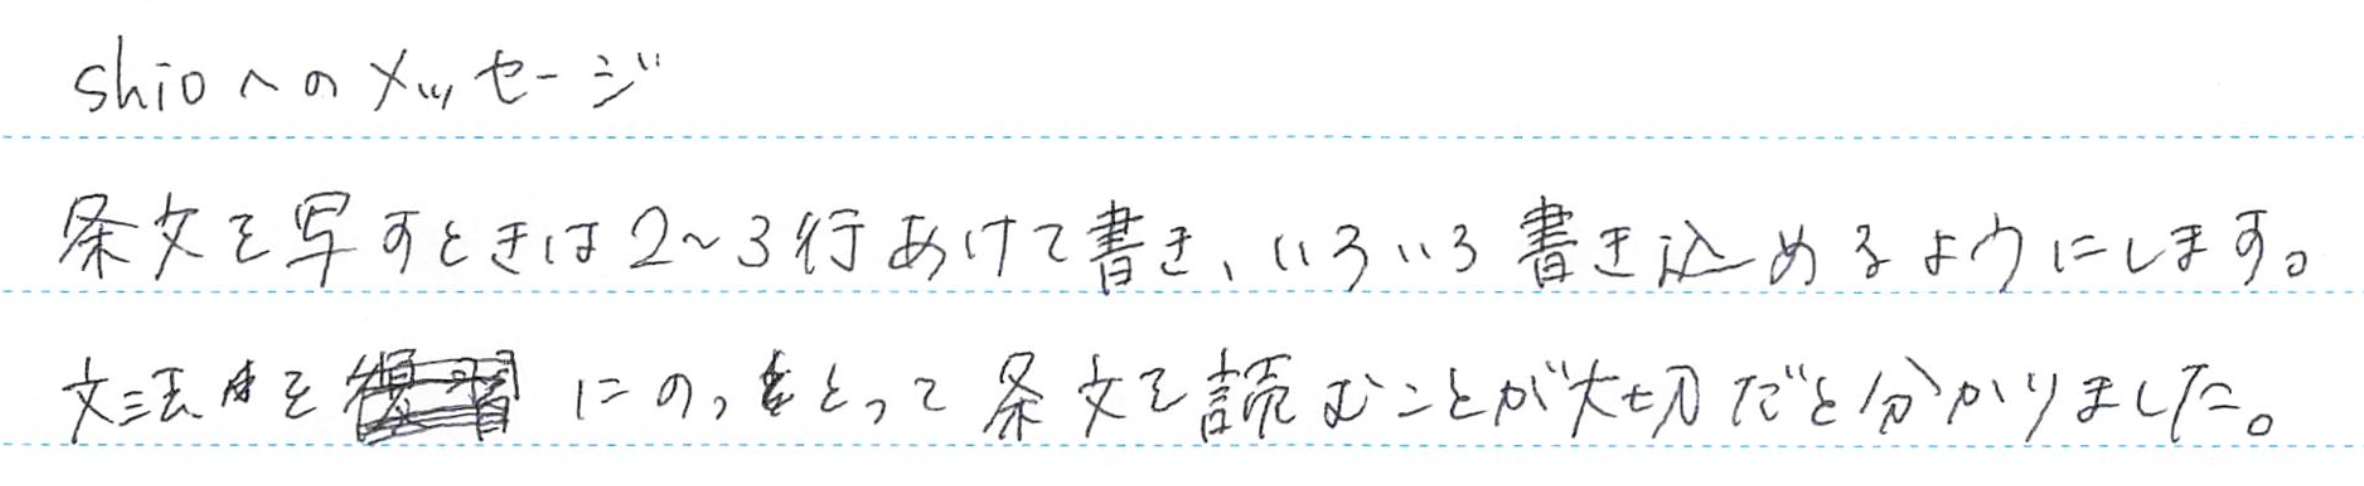 shioへのメッセージ
条文を写すときは2~3行あけて書き、いろいろ書き込めるようにします。
文法 にのっとって条文を読むことが大切だと分かりました。